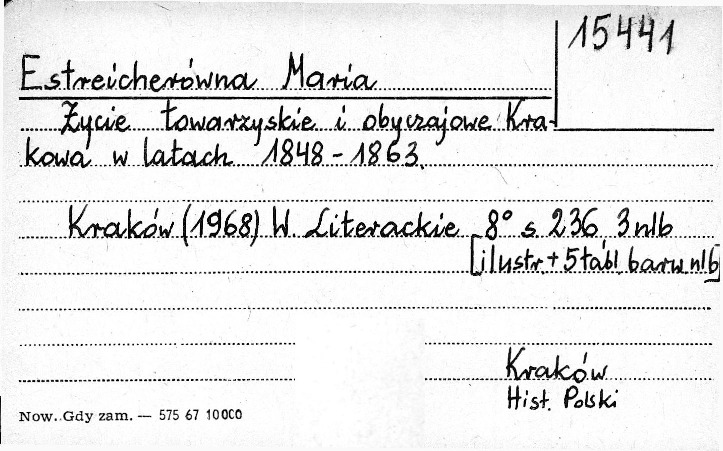 15441
Estreicherówna Maria
Życie towarzyskie i obyczajowe Kra-
kowa w latach 1848 - 1863.
Kraków (1968) W. Literackie 8° s. 236, 3 nlb
[ilustr + 5 tabl. barw nlb]
Kraków
Hist. Polski
Now. Gdy zam. — 575 67 10000